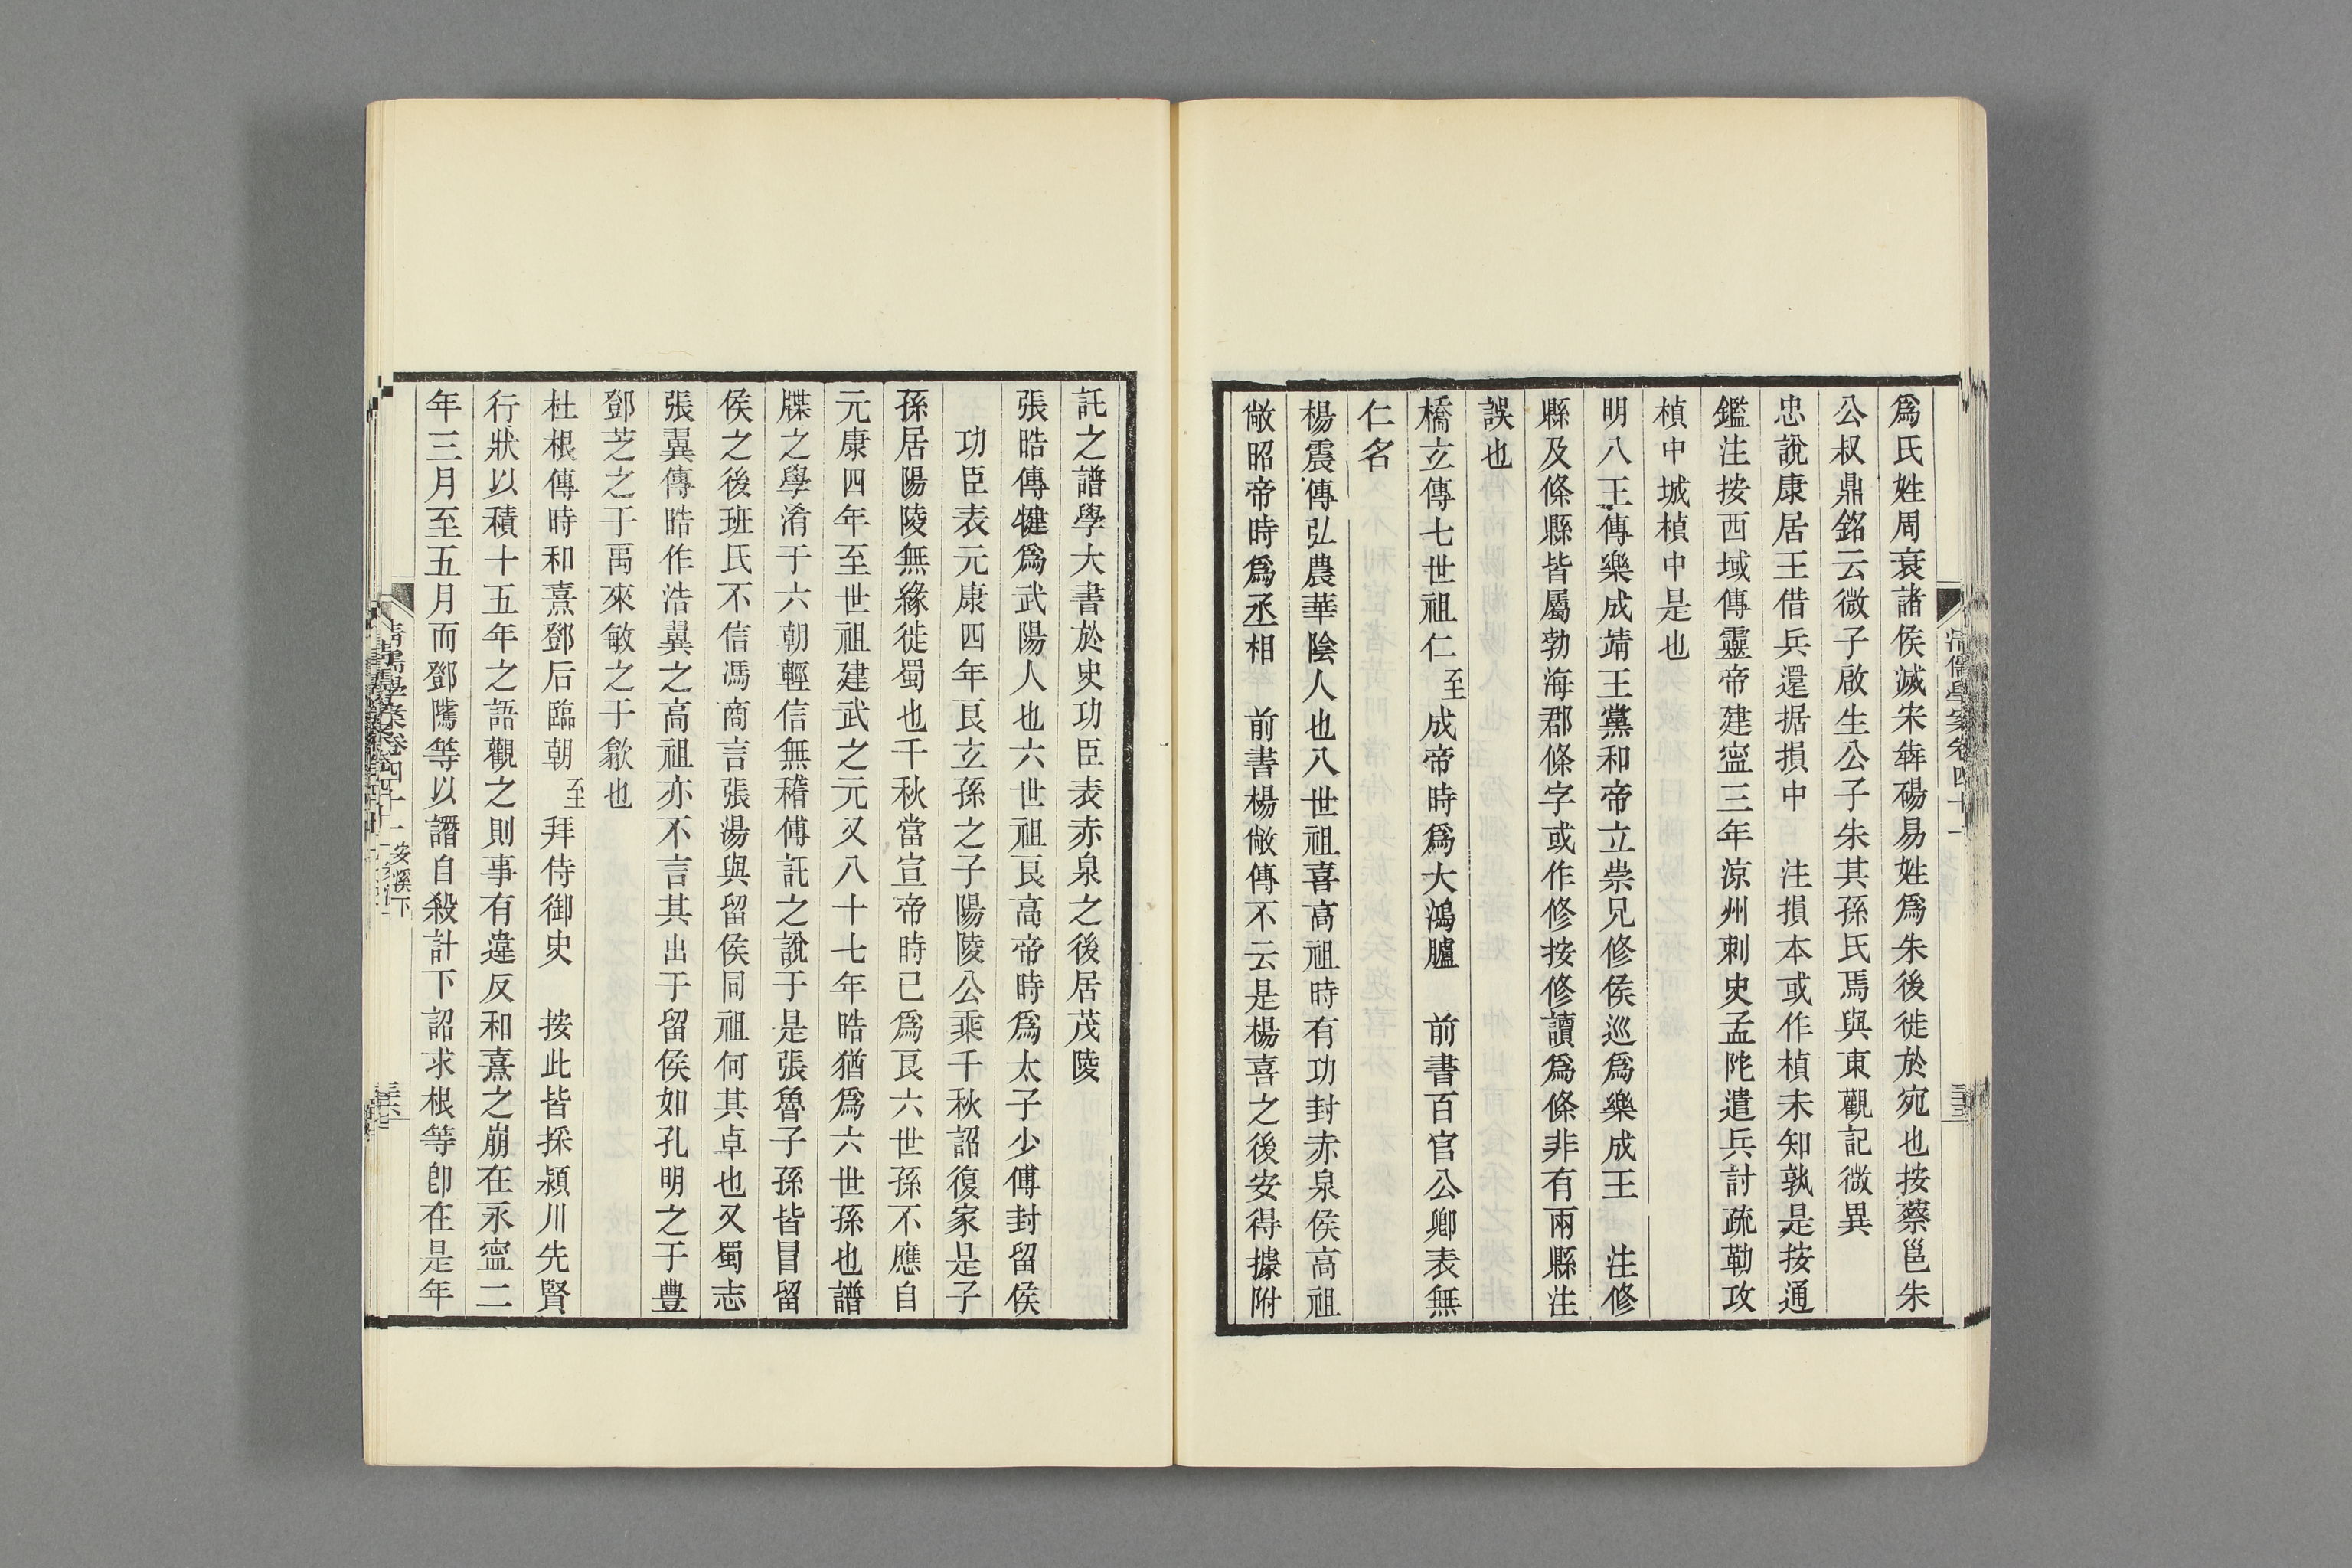 爲氏姓周衰諸侯滅宋犇碭易姓爲朱後徙於宛也按蔡邕朱
公叔鼎銘云微子啟生公子朱其孫氏焉與東觀記微異
忠說康居王借兵還据損中　注損本或作楨未知孰是按通
鑑注按西域傳靈帝建寍三年涼州刺史孟陀遣兵討疏勒攻
楨中城楨中是也
明八王傳樂成靖王黨和帝立崇兄修侯巡爲樂成王　注修
縣及條縣皆屬勃海郡條字或作修按修讀爲條非有兩縣注
誤也
橋玄傳七世祖仁至成帝時爲大鴻臚　前書百官公卿表無
仁名
楊震傳弘農華陰人也八世祖喜高祖時有功封赤泉侯高祖
敞昭帝時爲丞相　前書楊敞傳不云是楊喜之後安得據附
託之譜學大書於史功臣表赤泉之後居茂陵
張晧傳犍爲武陽人也六世祖良高帝時爲太子少傅封留侯
功臣表元康四年良玄孫之子陽陵公乘千秋詔復家是子
孫居陽陵無緣徙蜀也千秋當宣帝時已爲良六世孫不應自
元康四年至世祖建武之元又八十七年晧猶爲六世孫也譜
牒之學淆于六朝輕信無稽傅託之說于是張魯子孫皆冒留
侯之後班氏不信馮商言張湯與留侯同祖何其卓也又蜀志
張翼傳晧作浩翼之高祖亦不言其出于留侯如孔明之于豐
鄧芝之于禹來敏之于歙也
杜根傳時和熹鄧后臨朝至拜侍御史　按此皆採潁川先賢
行狀以積十五年之語觀之則事有違反和熹之崩在永寍二
年三月至五月而鄧隲等以譖自殺計下詔求根等卽在是年
清儒學案卷四十一
安溪下